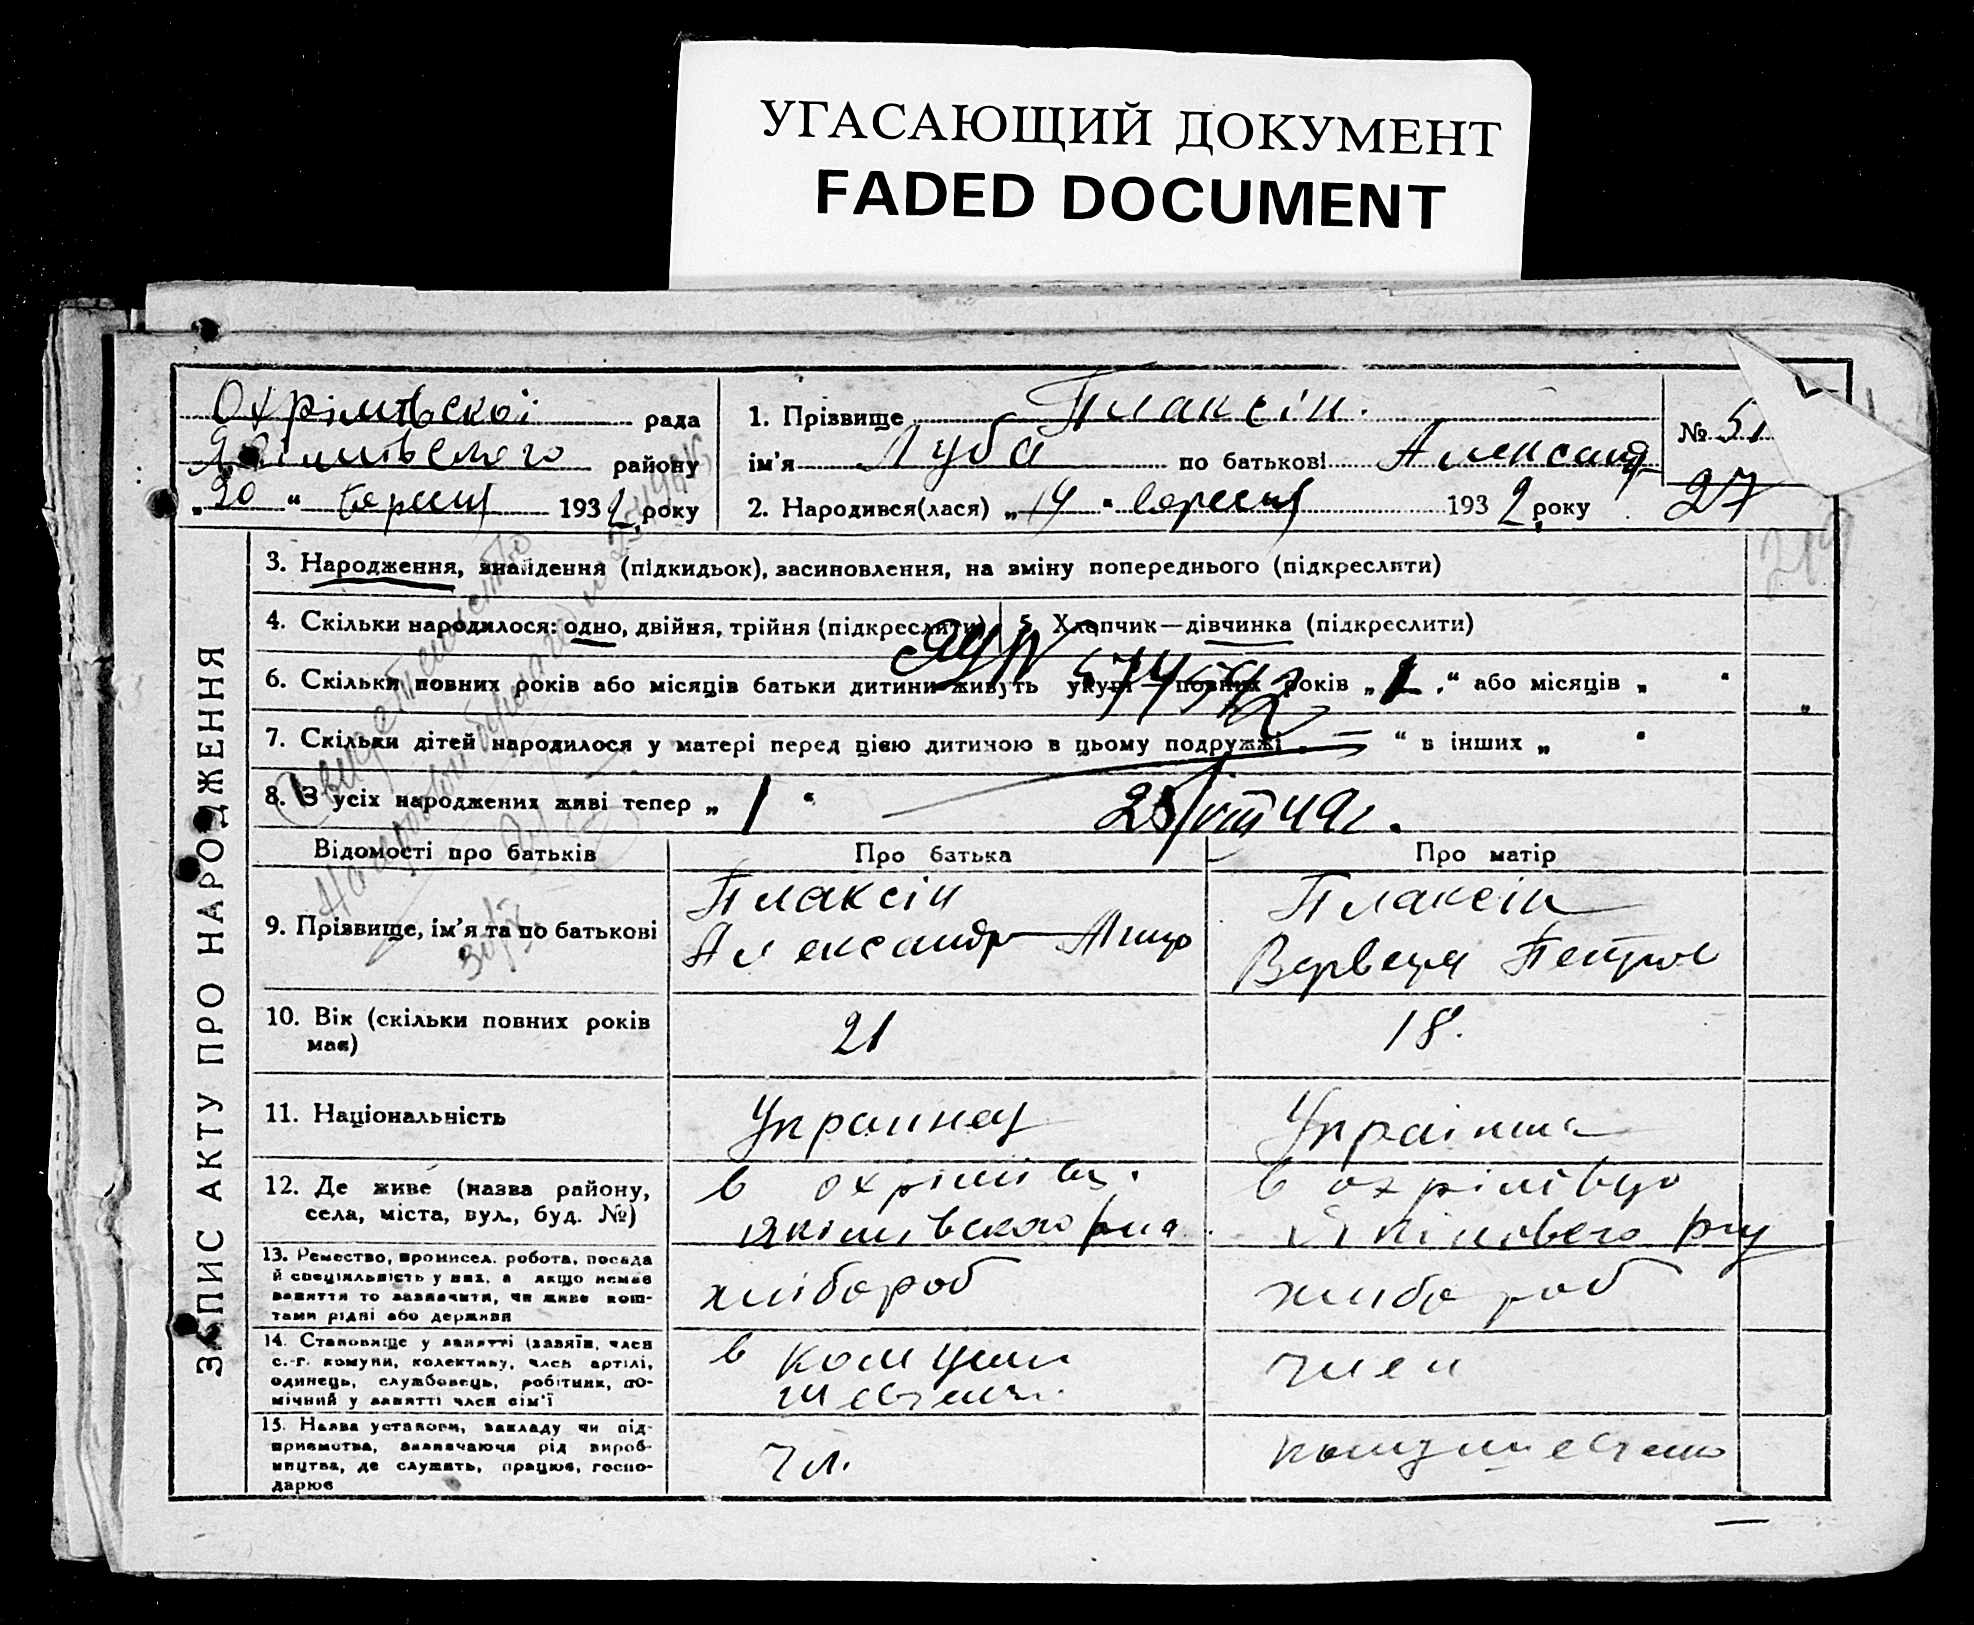 УГАСАЮЩИЙ ДОКУМЕНТ
FADED DOCUMENT
Охрімовскої рада
району
„20“ вересня 1932 року
1. Прізвище Плаксін.
ім'я Луба по батькові Александр
2. Народився(лася) „14“ вересня 1932 року
№ 51
27
219
ЗАПИС АКТУ ПРО НАРОДЖЕННЯ
3. Народження, знайдення (підкидьок), засиновлення, на зміну попереднього (підкреслити)
4. Скільки народилося: одно, двійня, трійня (підкреслити)
5. Хлопчик—дівчинка (підкреслити)
6. Скільки повних років або місяців батьки дитини живуть укупі — повних років „1“ або місяців „ “
7. Скільки дітей народилося у матері перед цією дитиною в цьому подружжі „—“ в інших „ “
8. З усіх народжених живі тепер „1“
25/VIII 49г.
Відомості про батьків
Про батька
Про матір
9. Прізвище, ім'я та по батькові
Плаксін
Александр
Плаксін
Варвара Петров
10. Вік (скільки повних років
має)
21
18.
11. Національність
Украинец
Украінка
12. Де живе (назва району,
села, міста, вул., буд. №)
в охрімівц.
Якімівского р-на
в охрімівцю
13. Ремество, промисел, робота, посада
й спеціяльність у них, а якщо немає
заняття то зазначити, чи живе кош-
тами рідні або держави
хлібороб
хлибороб
14. Становище у занятті (хазяїн, член
с.-г. комуни, колективу, член артілі,
одинець, службовець, робітник, по-
мічний у занятті член сім'ї
в комуни
член
15. Назва установи, закладу чи під-
приємства, зазначаючи рід вироб-
ництва, де служить, працює, госпо-
дарює
чл.